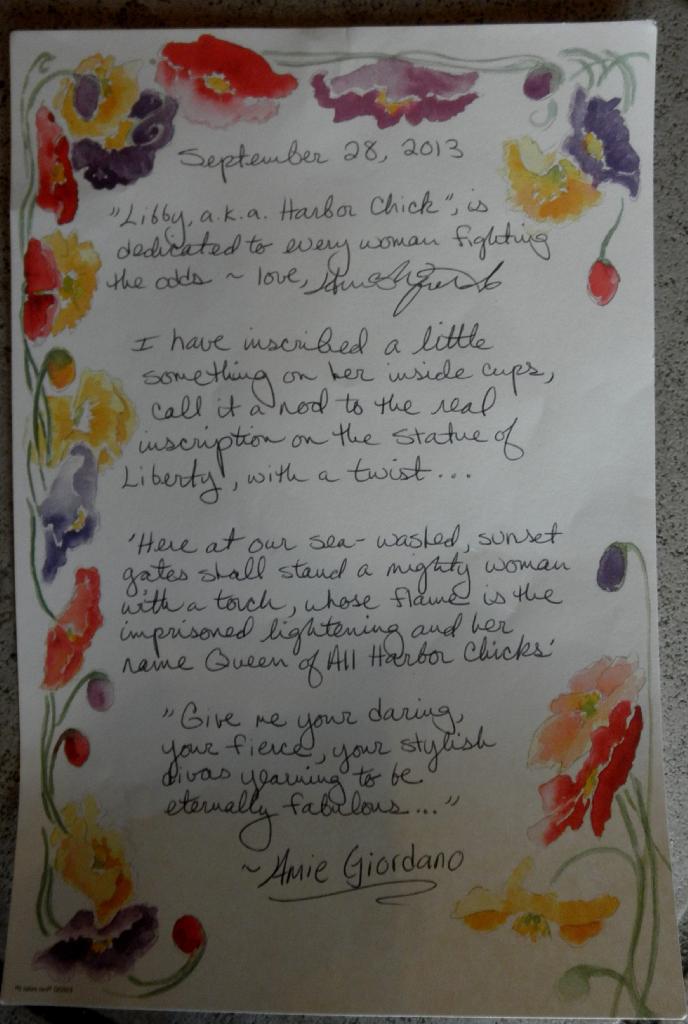 September 28, 2013
"Libby, a.k.a. Harbor Chick", is
dedicated to every woman fighting
the odds ~ love,
I have inscribed a little
something on her inside cups,
call it a nod to the real
inscription on the Statue of
Liberty, with a twist...
'Here at our sea-washed, sunset
gates shall stand a mighty woman
with a torch, whose flame is the
imprisoned lightening and her
name Queen of All Harbor Chicks'
"Give me your daring,
your fierce, your stylish
divas yearning to be
eternally fabulous..."
~ Amie Giordano